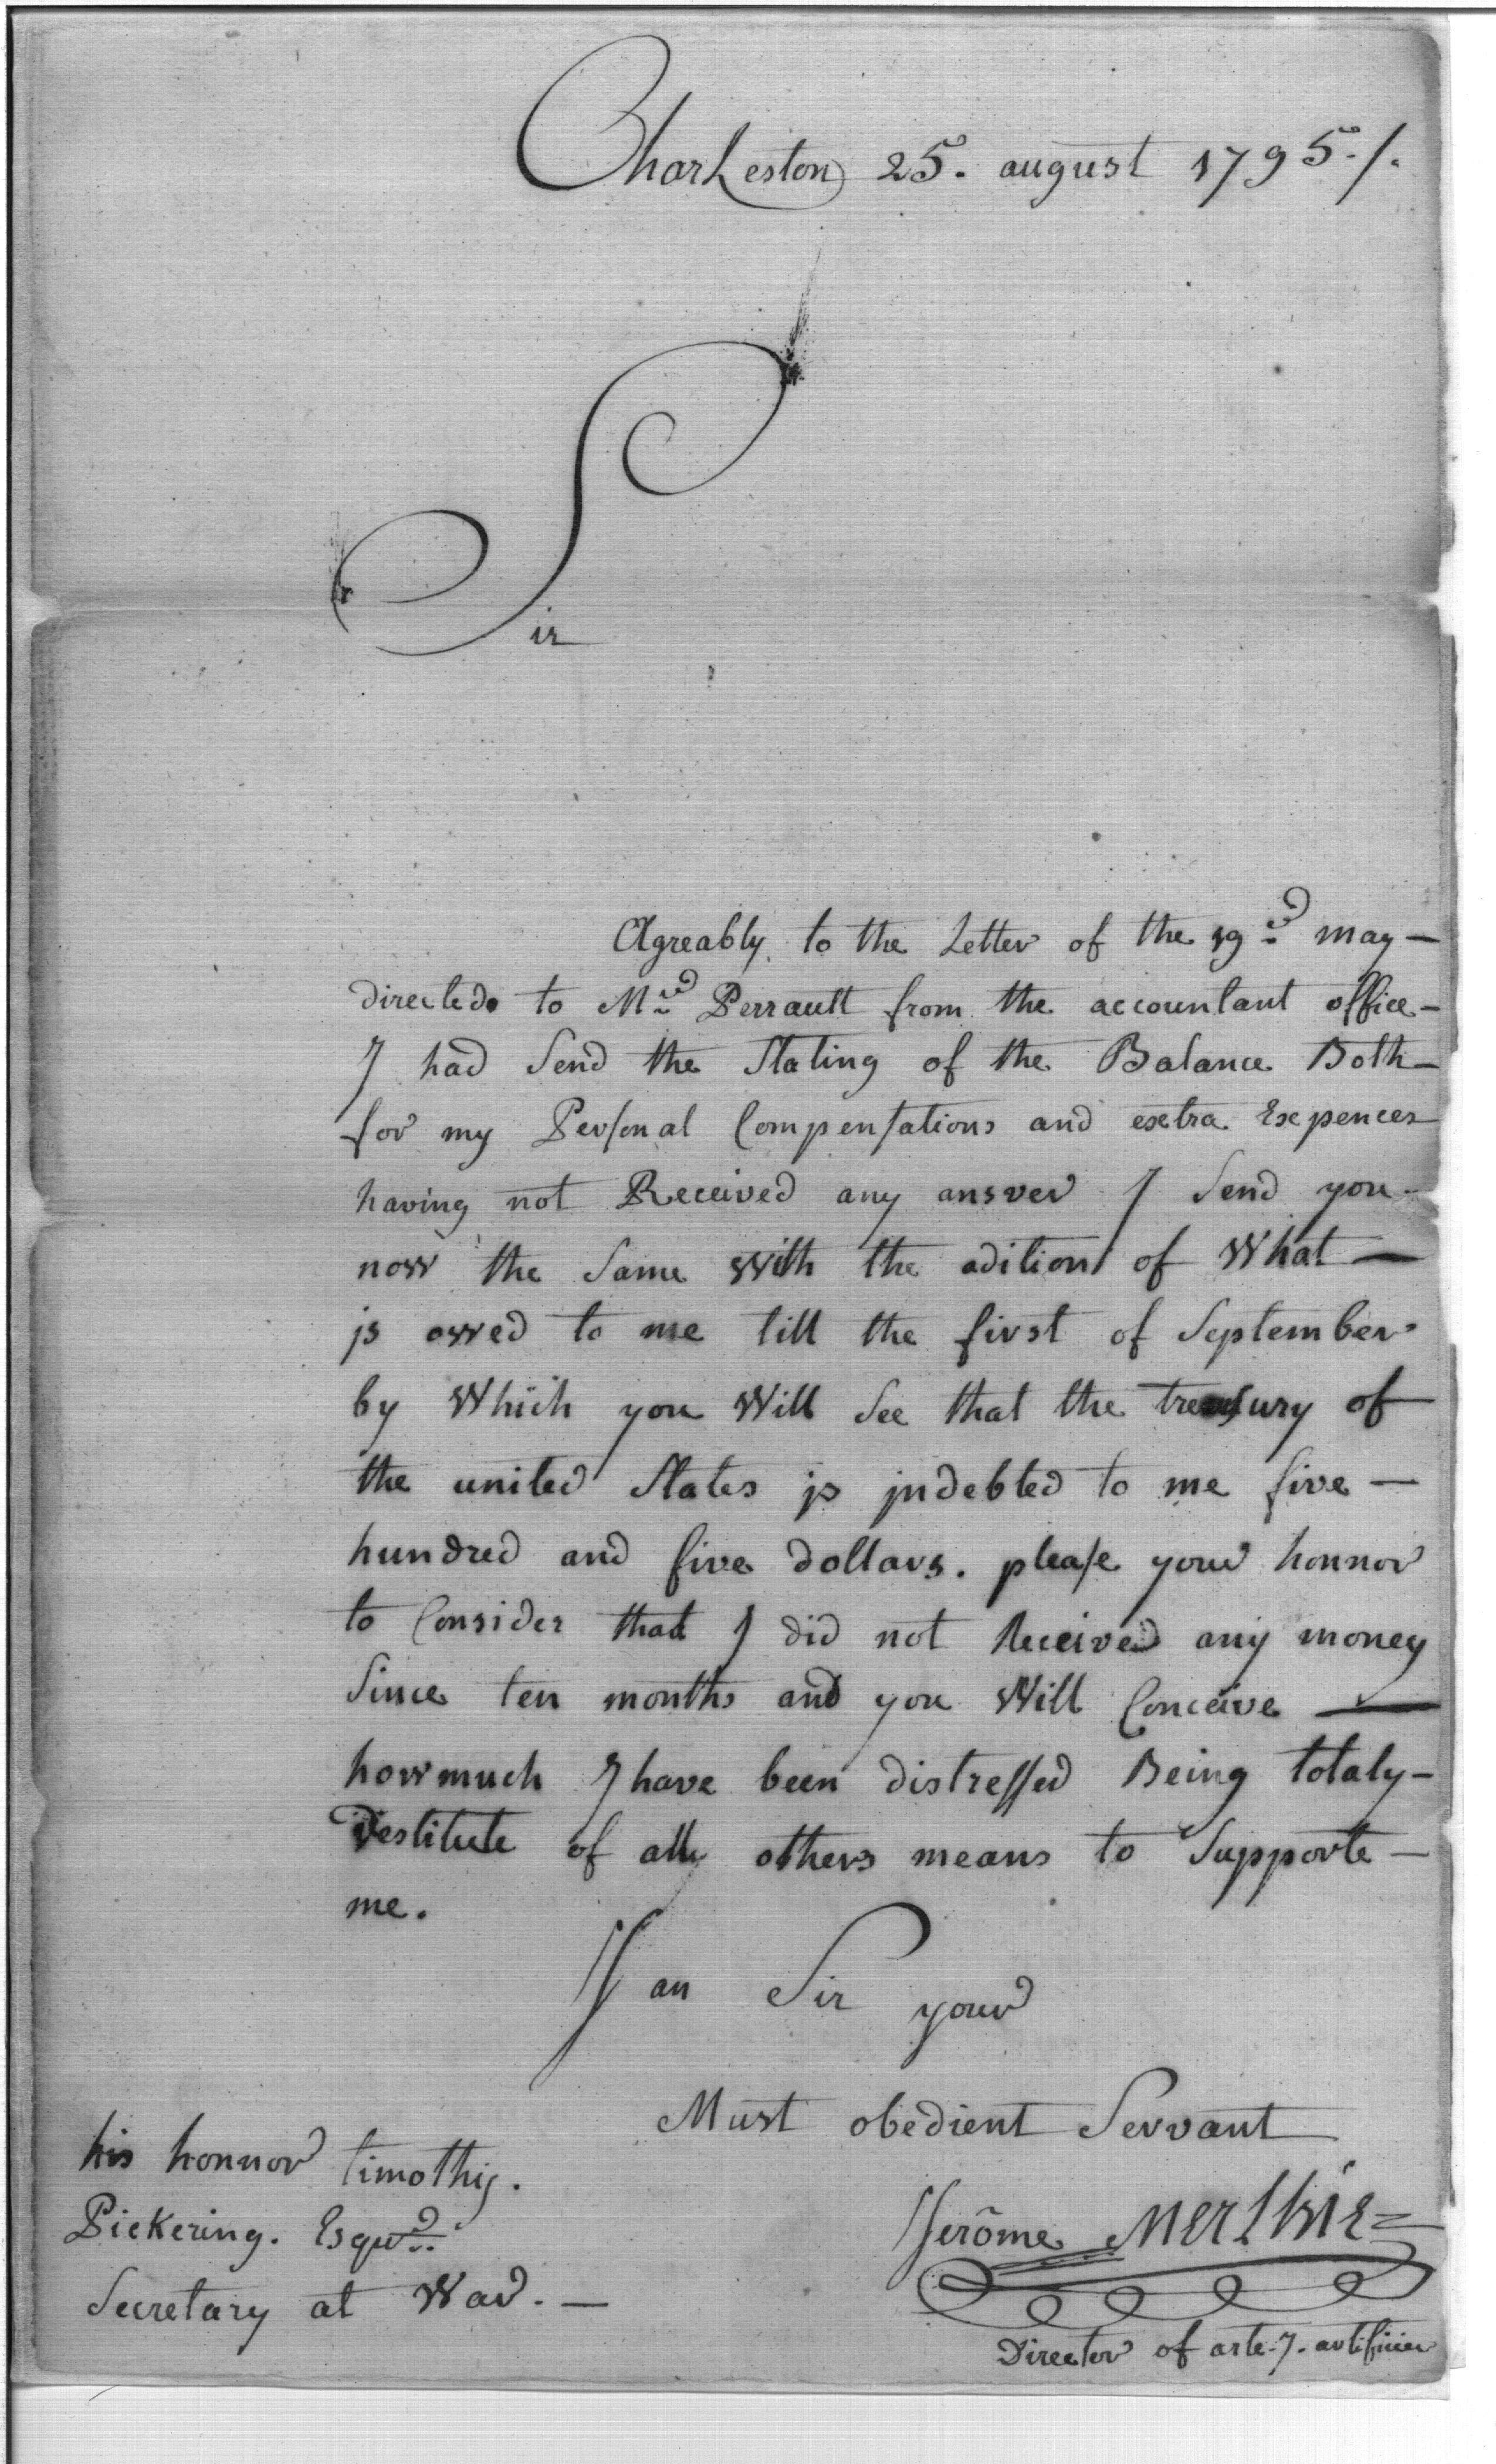 Charleston 25. august 1795./.
Sir
Agreably to the Letter of the 19.d may —
directed to Mr. Perrault from the accountant office —
I had Send the Stating of the Balance Both —
for my Personal Compensations and extra Expences
having not Received any ansver I Send you —
now the Same With the adition of What —
is owed to me till the first of September
by Which you Will See that the treasury of
the united States is indebted to me five —
hundred and five dollars. please your honnor
to Consider that I did not Received any money
Since ten months and you Will Conceive —
how much I have been distressed Being totaly —
Destitute of all others means to Supporte —
me.
I an Sir your
Must obedient Servant
his honnor timothy.
Pickering. Esqur.
Secretary at War. —
Jerôme
Director of arte.y. artificier